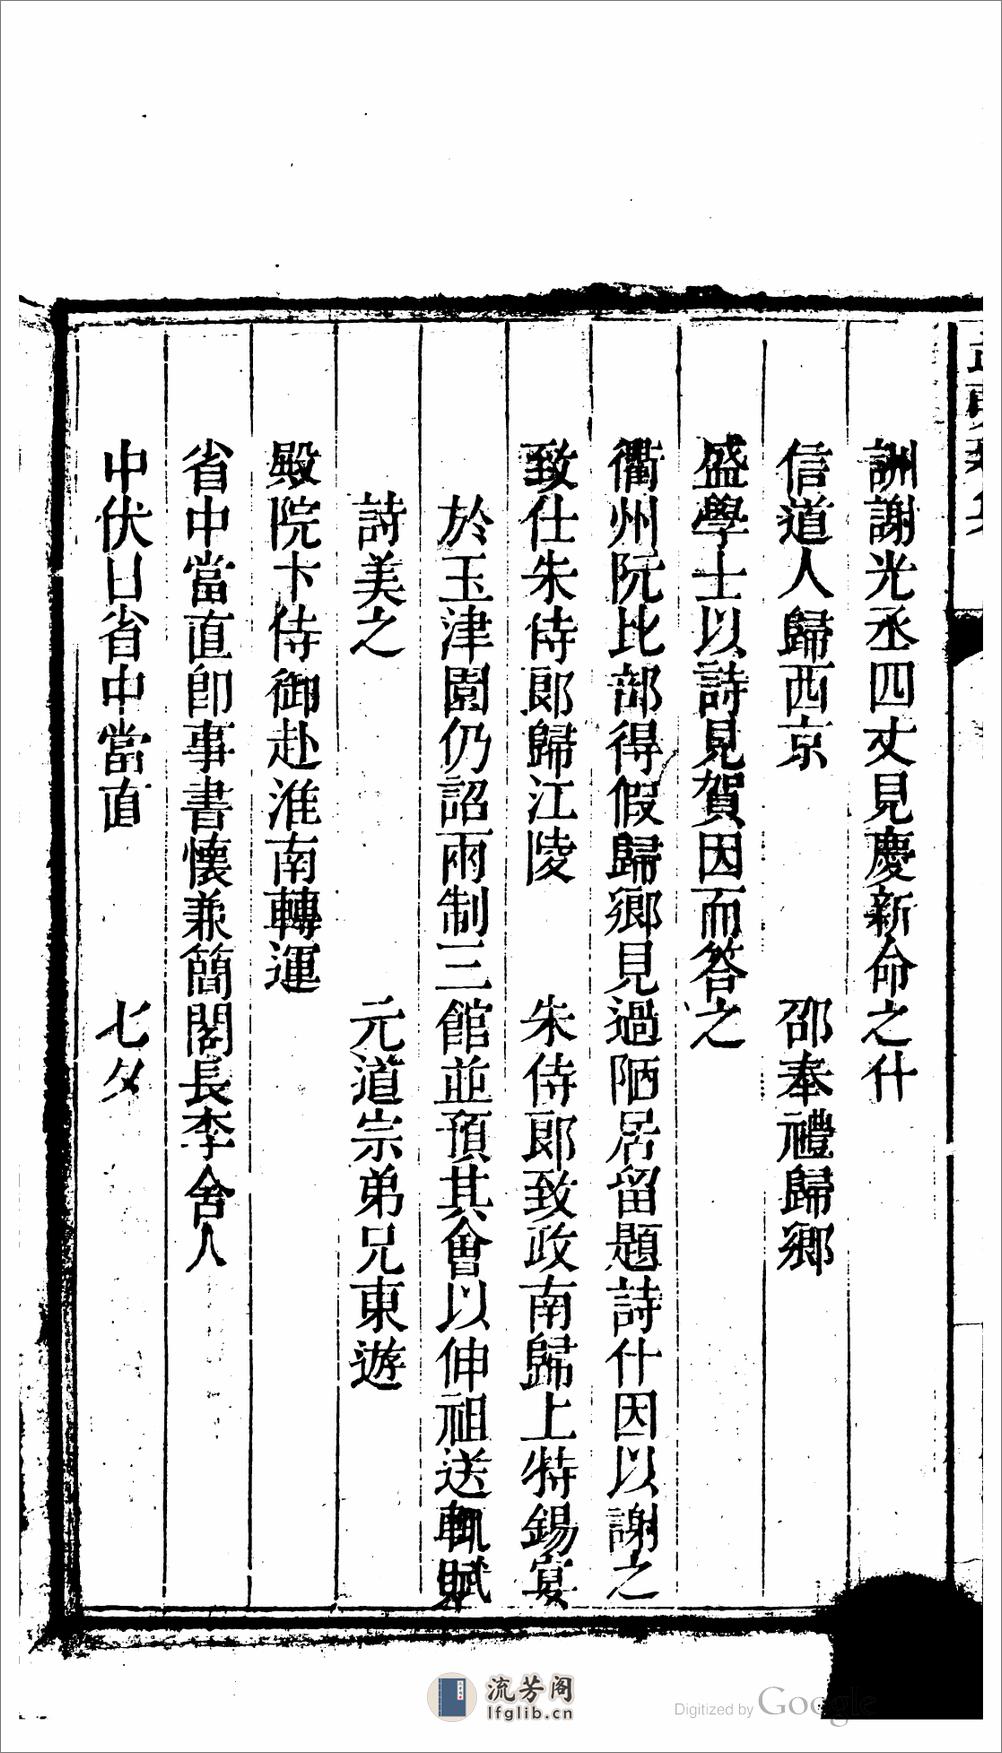 詶謝光丞四丈見慶新命之什
信道人歸西京　邵奉禮歸鄉
盛學士以詩見賀因而答之
衢州阮比部得假歸鄉見過陋居留題詩什因以謝之
致仕朱侍郎歸江陵　朱侍郎致政南歸上特錫宴
於玉津園仍詔兩制三館並預其會以伸祖送輒賦
詩美之　元道宗弟兄東遊
殿院卞侍御赴淮南轉運
省中當直卽事書懷兼簡閣長李舍人
中伏日省中當直　七夕
流芳阁
lfglib.cn
Digitized by Google